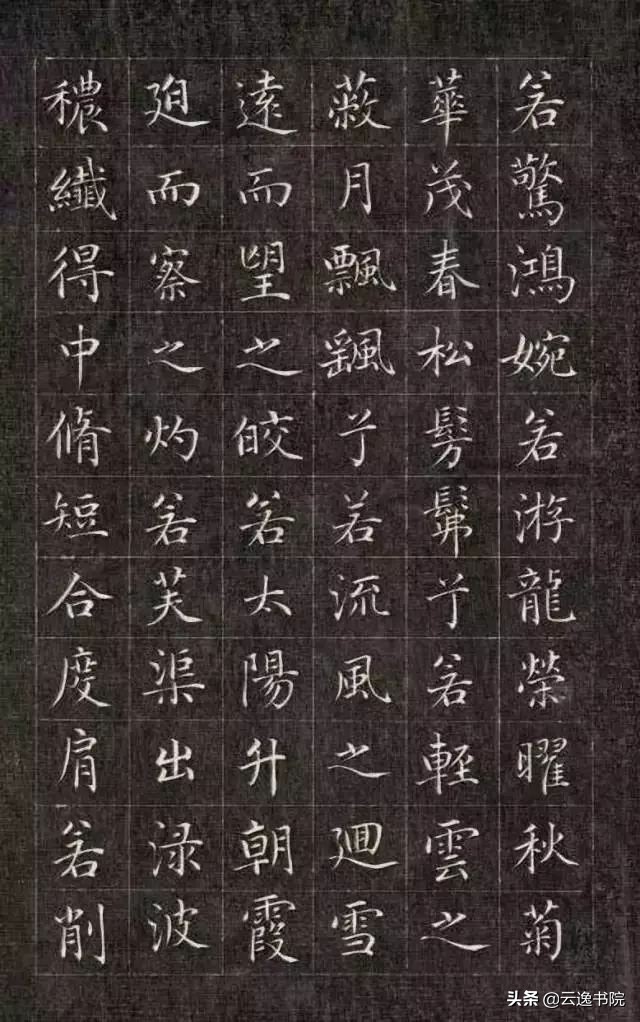 若驚鴻婉若游龍榮曜秋菊
華茂春松髣髴兮若輕雲之
蔽月飄颻兮若流風之迴雪
遠而望之皎若太陽升朝霞
迫而察之灼若芙渠出渌波
穠纖得中脩短合度肩若削
头条 @云逸书院